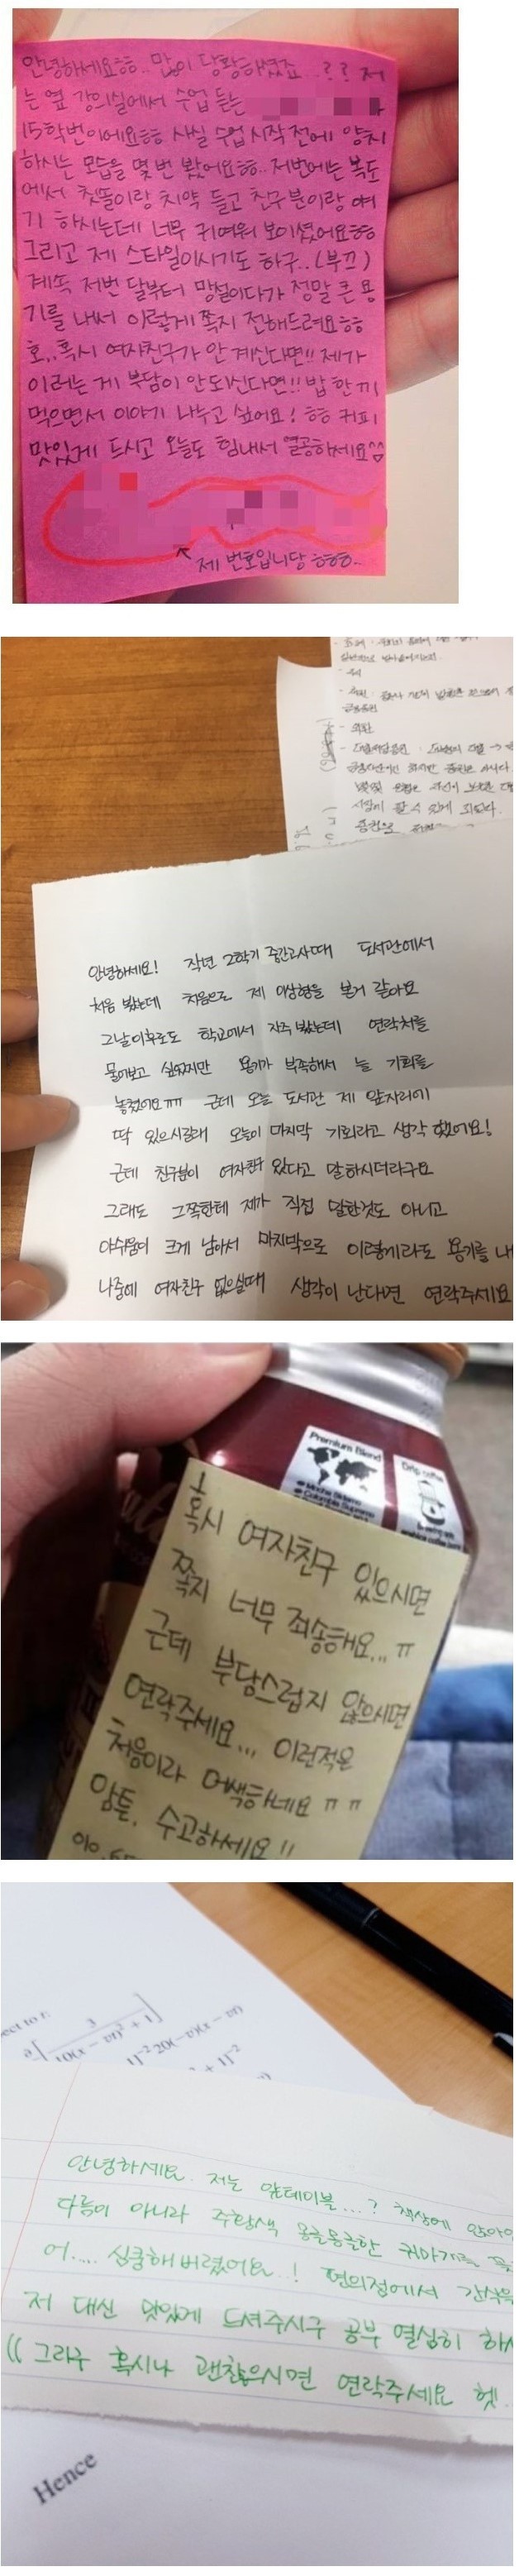 안녕하세요ㅎㅎ.. 많이 당황하셨죠..?? 저
는 옆 강의실에서 수업 듣는
15학번이에요ㅎㅎ 사실 수업 시작 전에 양치
하시는 모습을 몇번 봤어요ㅎㅎ.. 저번에는 복도
에서 칫똘이랑 치약 들고 친구분이랑 얘
기 하시는데 너무 귀여워 보이셨어요ㅎㅎ
그리고 제 스타일이시기도 하구..(부끄)
계속 저번 달부터 망설이다가 정말 큰 용
기를 내서 이렇게 쪽지 전해드려요ㅎㅎ
호,,혹시 여자친구가 안 계신다면!! 제가
이러는 게 부담이 안되신다면!! 밥 한끼
먹으면서 이야기 나누고 싶어요! ㅎㅎ 커피
맛있게 드시고 오늘도 힘내서 열공하세요^^
제 번호입니당 ㅎㅎㅎ..
안녕하세요! 작년 2학기 중간고사때 도서관에서
처음 봤는데 처음으로 제 이상형을 본거 같아요
그날이후로도 학교에서 자주 봤는데 연락처를
물어보고 싶었지만 용기가 부족해서 늘 기회를
놓쳤어요ㅠㅠ 근데 오늘 도서관 제 앞자리에
딱 있으시길래 오늘이 마지막 기회라고 생각 했어요!
근데 친구분이 여자친구 있다고 말하시더라구요
그래도 그쪽한테 제가 직접 말한것도 아니고
아쉬움이 크게 남아서 마지막으로 이렇게라도 용기를 내
나중에 여자친구 없으실때 생각이 난다면 연락주세요
Premium Blend
Drip coffee
Mocha Sidamo
Colombia Supremo
혹시 여자친구 있으시면
쪽지 너무 죄송해요...ㅠ
근데 부담스럽지 않으시면
연락주세요... 이런적은
처음이라 어색하네요ㅠㅠ
암튼, 수고하세요!!
안녕하세요. 저는 앞테이블...? 책상에 앉아
다름이 아니라 주황색 몽글몽글한 귀마개를
어.... 심쿵해버렸어요..! 편의점에서 간식을
저 대신 맛있게 드셔주시구 공부 열심히 하
(( 그라구 혹시나 괜찮으시면 연락주세요 헷!
Hence